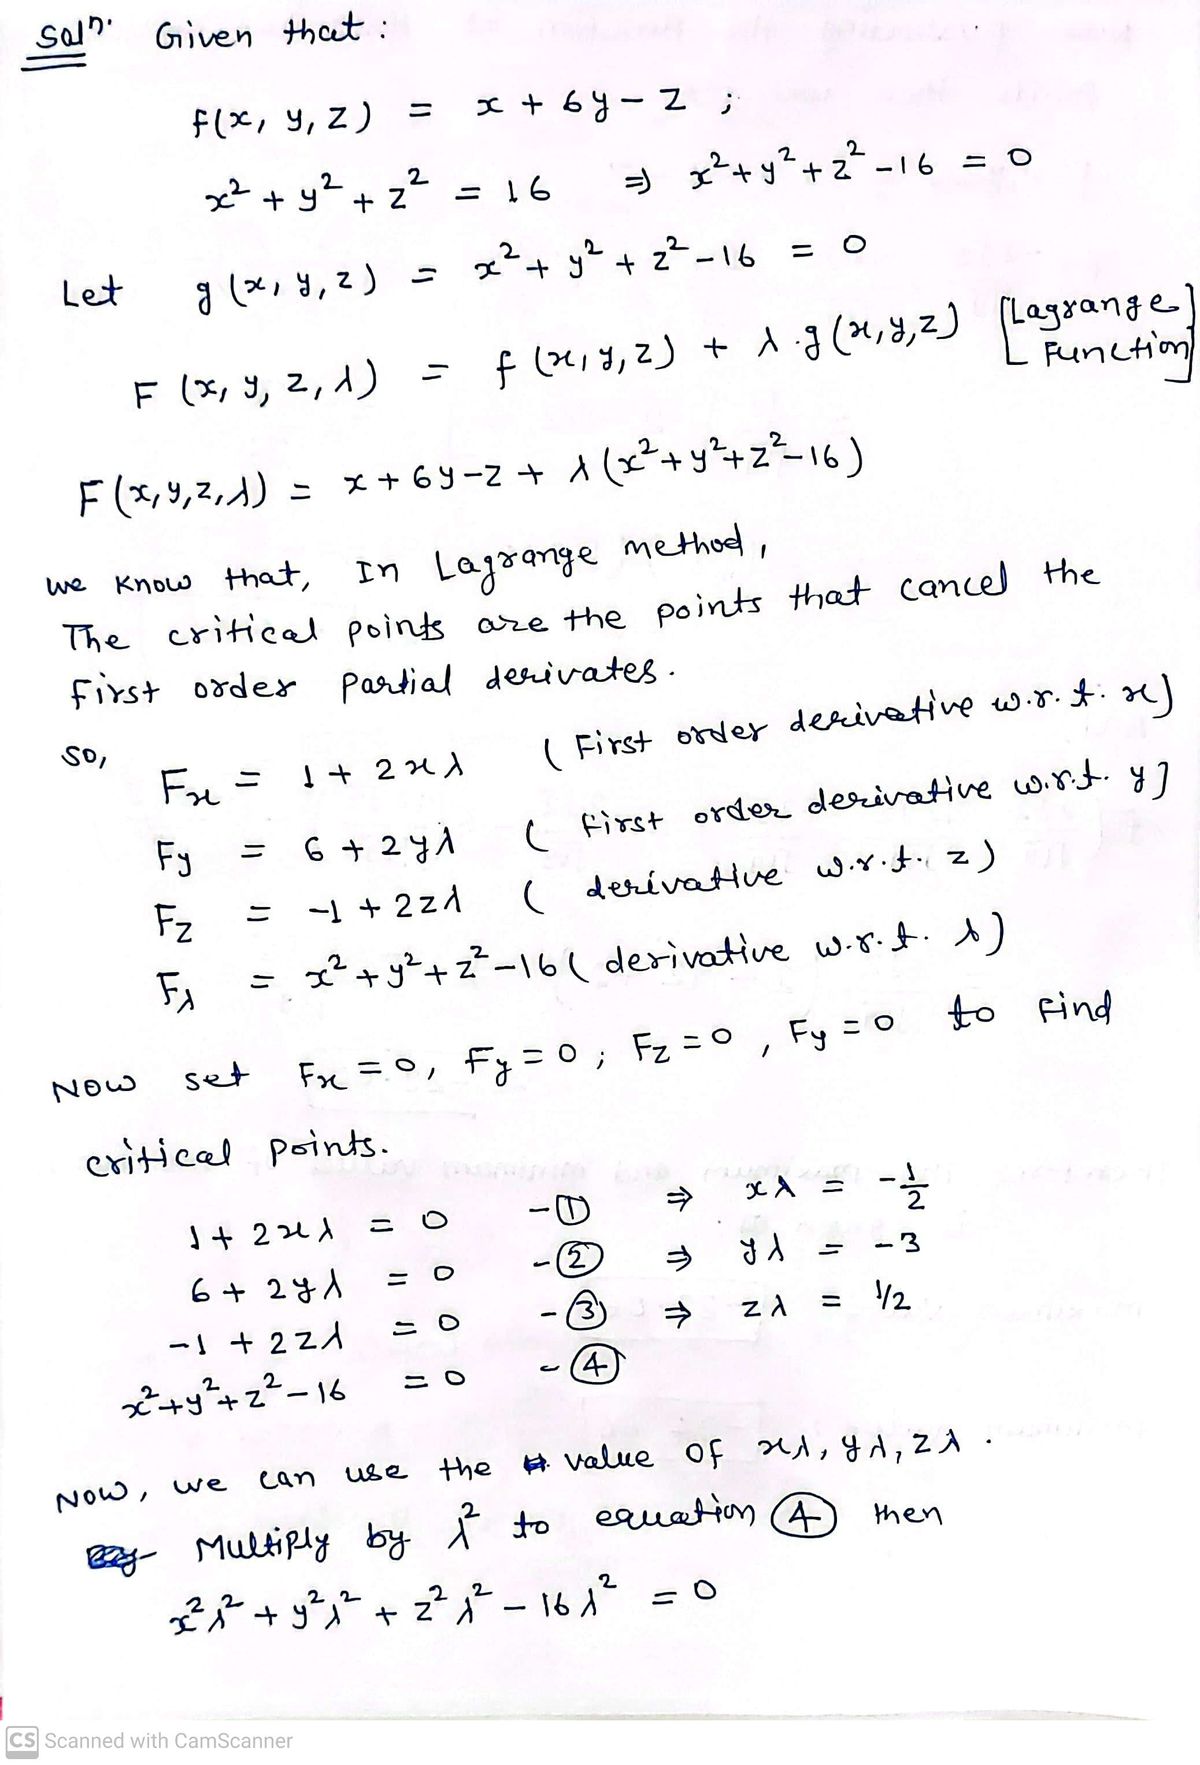 Solⁿ. Given that :
f(x, y, z) = x + 6y - z ;
x² + y² + z² = 16 ⇒ x² + y² + z² - 16 = 0
Let g (x, y, z) = x² + y² + z² - 16 = 0
F (x, y, z, λ) = f (x, y, z) + λ · g (x, y, z) [Lagrange Function]
F (x, y, z, λ) = x + 6y - z + λ (x² + y² + z² - 16)
we know that, In Lagrange method,
The critical points are the points that cancel the
first order partial derivates.
so,
Fx = 1 + 2xλ ( First order derivative w.r.t. x)
Fy = 6 + 2yλ ( first order derivative w.r.t. y)
Fz = -1 + 2zλ ( derivative w.r.t. z)
Fλ = x² + y² + z² - 16 ( derivative w.r.t. λ)
Now set Fx = 0, Fy = 0 ; Fz = 0 , Fy = 0 to find
critical points.
1 + 2xλ = 0 - ① ⇒ xλ = -1/2
6 + 2yλ = 0 - ② ⇒ yλ = -3
-1 + 2zλ = 0 - ③ ⇒ zλ = 1/2
x² + y² + z² - 16 = 0 - ④
Now, we can use the value of xλ, yλ, zλ .
Multiply by λ² to equation ④ then
x²λ² + y²λ² + z²λ² - 16λ² = 0
CS Scanned with CamScanner